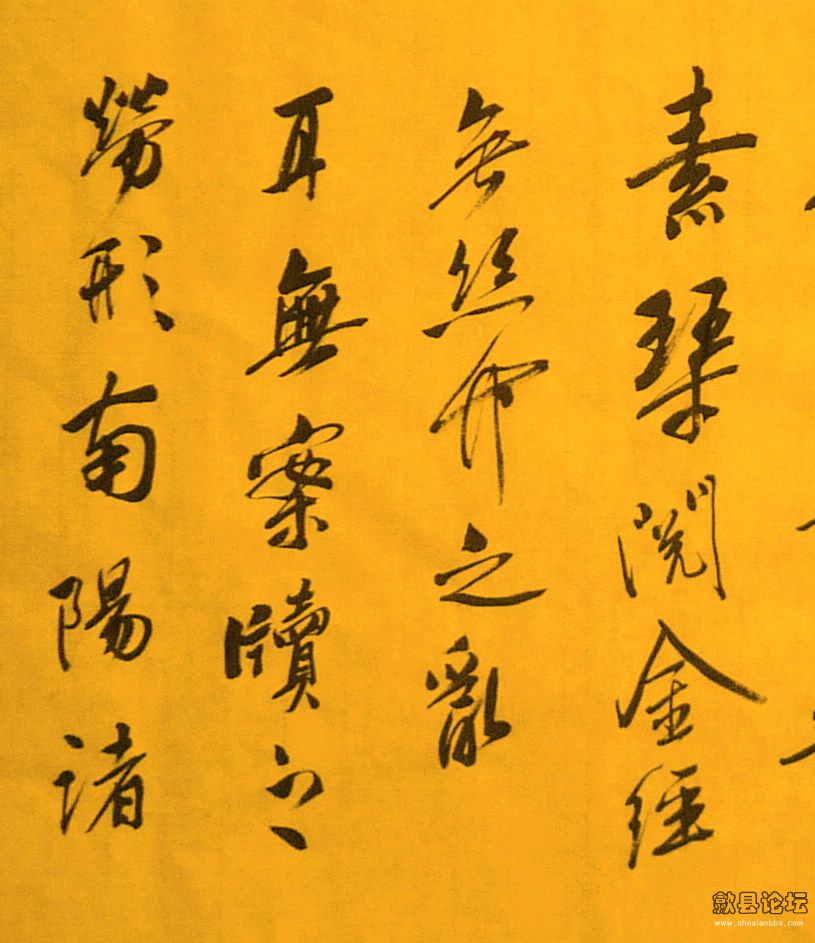 素琴閱金經
無丝竹之亂
耳無案牘之
勞形南陽諸
歙县论坛
www.shexianbbs.com